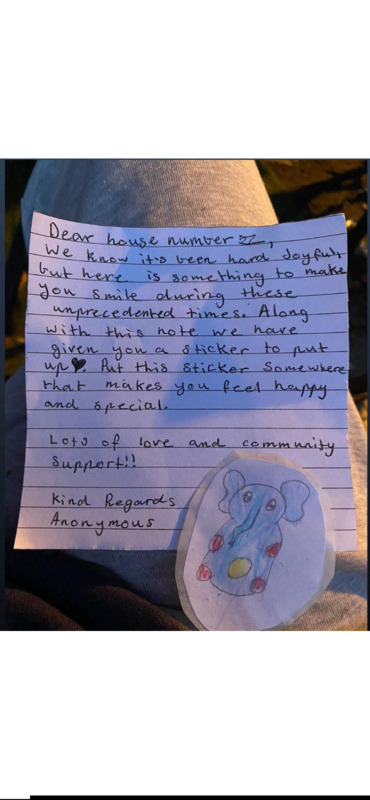 Dear house number
We know it's been hard Joyful,
but here is something to make
you smile during these
unprecedented times. Along
with this note we have
given you a sticker to put
up♥ Put this sticker somewhere
that makes you feel happy
and special.
Lots of love and community
Support!!
Kind Regards
Anonymous